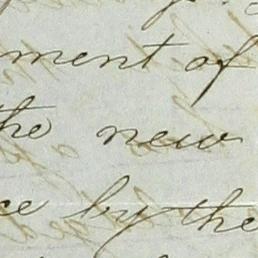 ment of
the new
ce by the